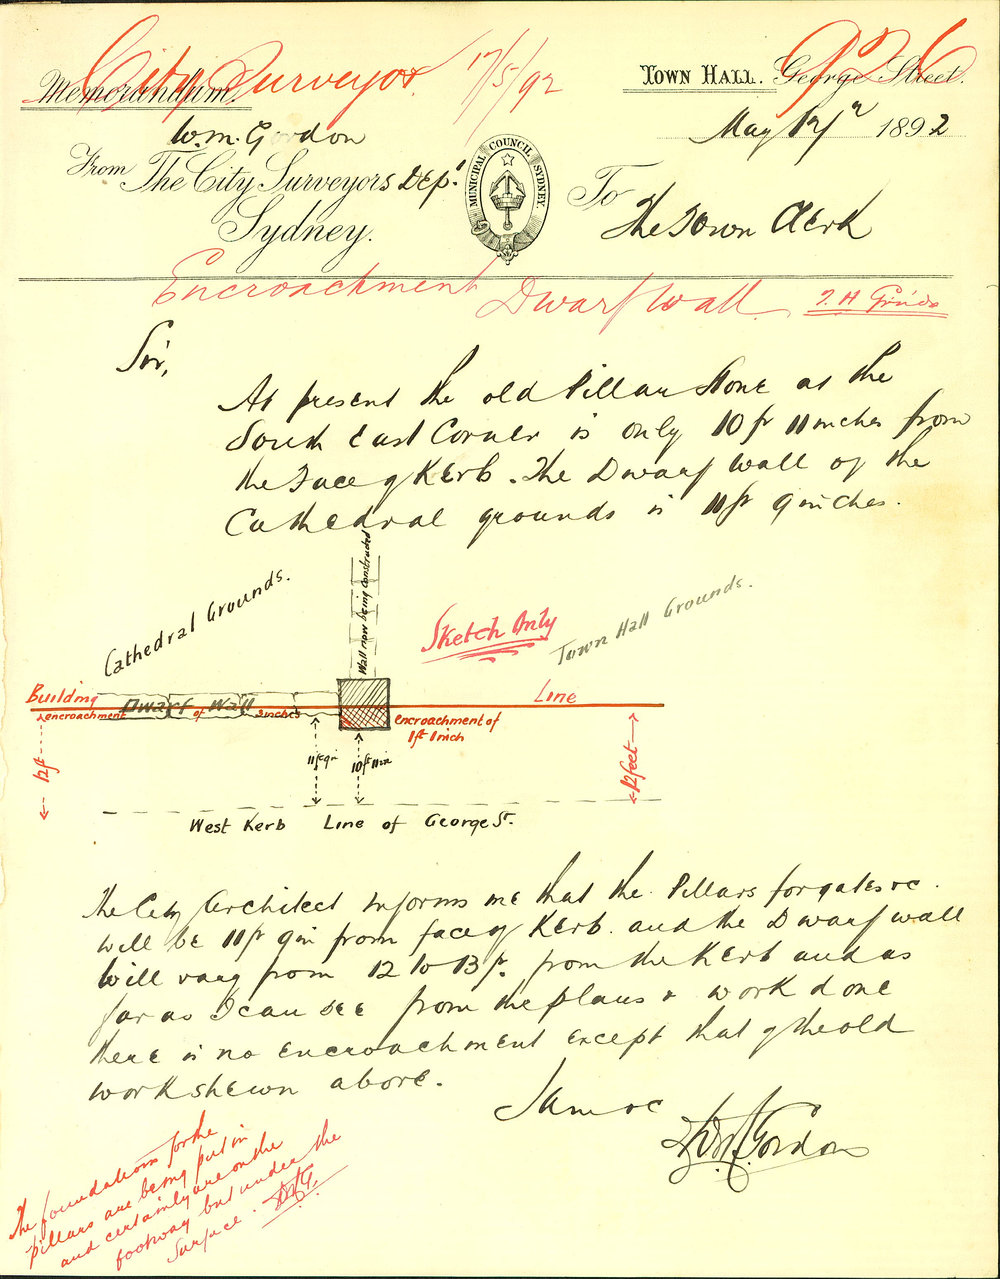 City Surveyor 17/5/92
926
Memorandum.
TOWN HALL. George Street.
May 17th 1892
Wm. Gordon
From The City Surveyors Dep.t
Sydney.
MUNICIPAL COUNCIL SYDNEY.
To The Town Clerk
Encroachment Dwarf Wall T. H. Grounds
Sir,
At present the old Pillar Stone at the
South East Corner is only 10 ft 11 inches from
the Face of Kerb. The Dwarf wall of the
Cathedral grounds is 11 ft 9 inches.
Cathedral Grounds.
Wall now being constructed
Sketch Only
Town Hall Grounds.
Building Line
Dwarf Wall
encroachment of inches
encroachment of
1 ft 1 inch
12 ft
11 ft 9 in
10 ft 11 in
12 feet
West Kerb Line of George St.
The City Architect informs me that the Pillars for gates &c.
will be 11 ft 9 in from face of Kerb. and the Dwarf wall
will vary from 12 to 13 ft. from the Kerb and as
far as I can see from the plans & work done
there is no encroachment except that of the old
work shewn above.
I am &c
Wm. Gordon
The foundations for the
pillars are being put in
and certainly are on the
footway but under the
surface. W.G.